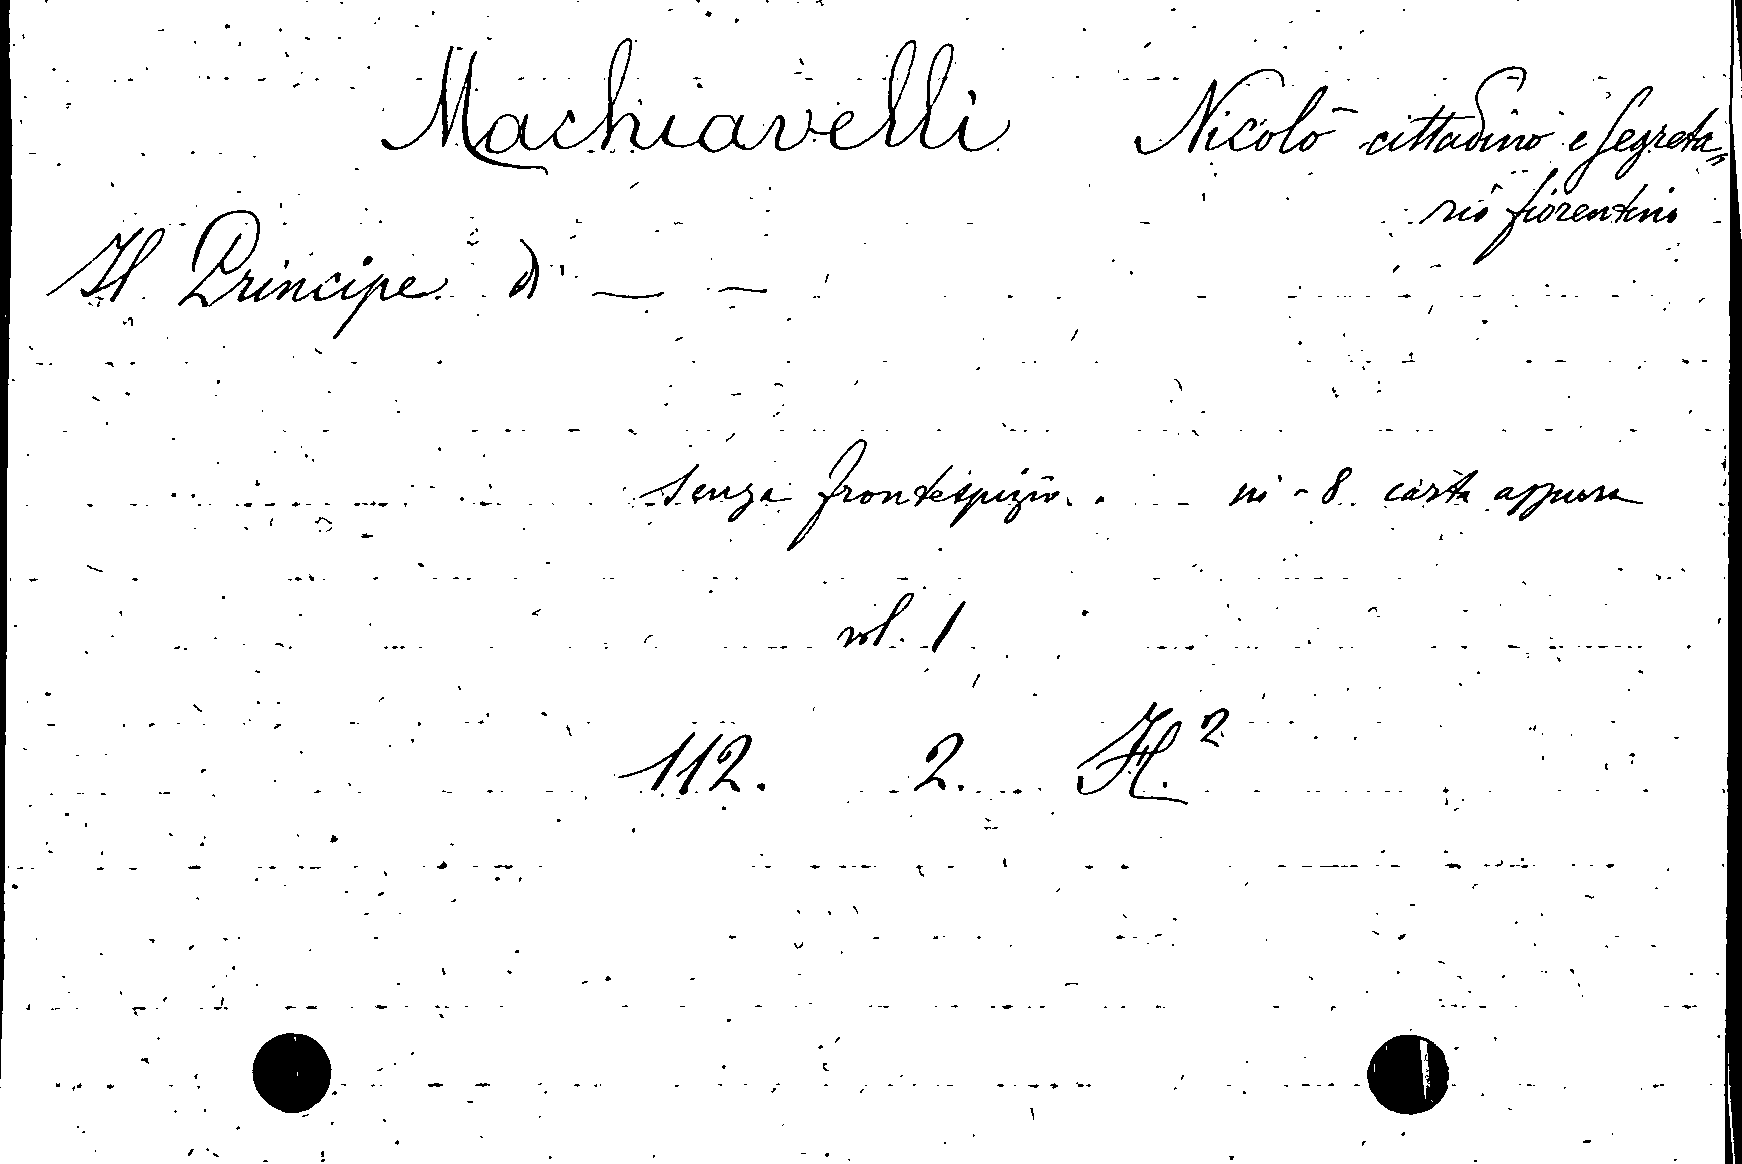 Machiavelli Nicolò cittadino e Segreta=
rio fiorentino
Il Principe di — —
senza frontespizio. in-8 carta
vol. 1
112. 2. H.2